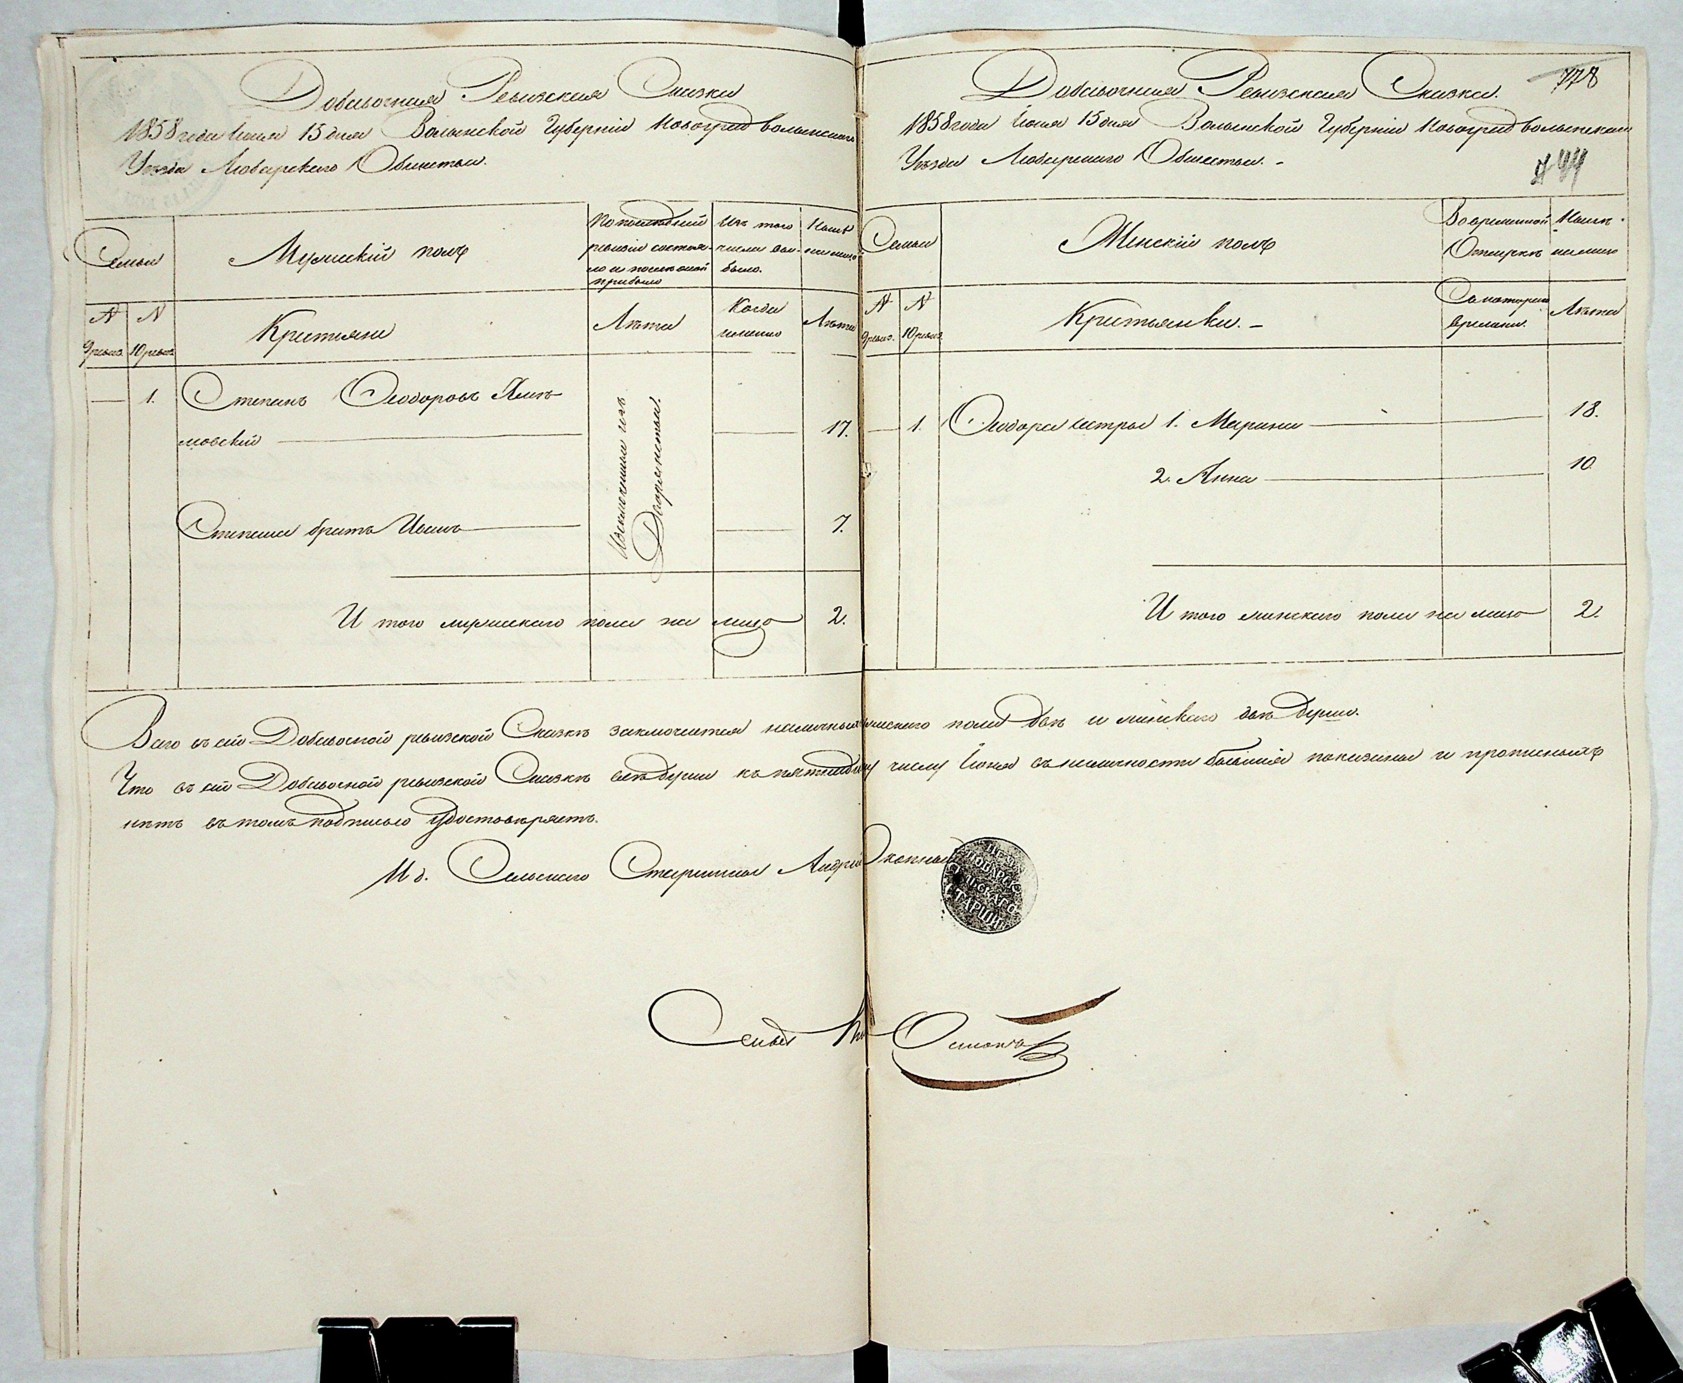 Добавочная Ревизская Сказка
1858 года Іюня 15 дня Волынской Губерніи Новоградволынскаго
Уезда Любарскаго Общества.
Семьи
Мужескій полъ
По последней ревизіи состояло и после оной прибыло
Изъ того числа выбыло.
Ныне на лицо
№ 9 ревиз.
№ 10 ревиз.
Крестьяне
Лета
Когда именно
Лета
1. Степанъ Феодоровъ
мовскій 17.
Степана братъ Иванъ 7.
И того мужескаго пола на лицо 2.
778
Добавочная Ревизская Сказка.
1858 года Іюня 15 дня Волынской Губерніи Новоградволынскаго
Уезда Любарскаго Общества. -
Семьи
Женскій полъ
Во временной Отлучке
Ныне на лицо
№ 9 ревиз.
№ 10 ревиз.
Крестьянки. -
Съ котораго времени.
Лета
1. Феодора сестры 1. Марина 18.
2. Анна 10.
И того женскаго пола на лицо 2.
Всего въ сей Добавочной ревизской Сказке заключается наличныхъ мужескаго пола две и женскаго две души.
Что въ сей Добавочной ревизской Сказке все души къ пятнадцатому числу Іюня въ наличности бывшія показаны и прописныхъ
нетъ въ томъ подписью удостоверяетъ.
И д. Сельскаго Старшины Андрей
СТАРШИН